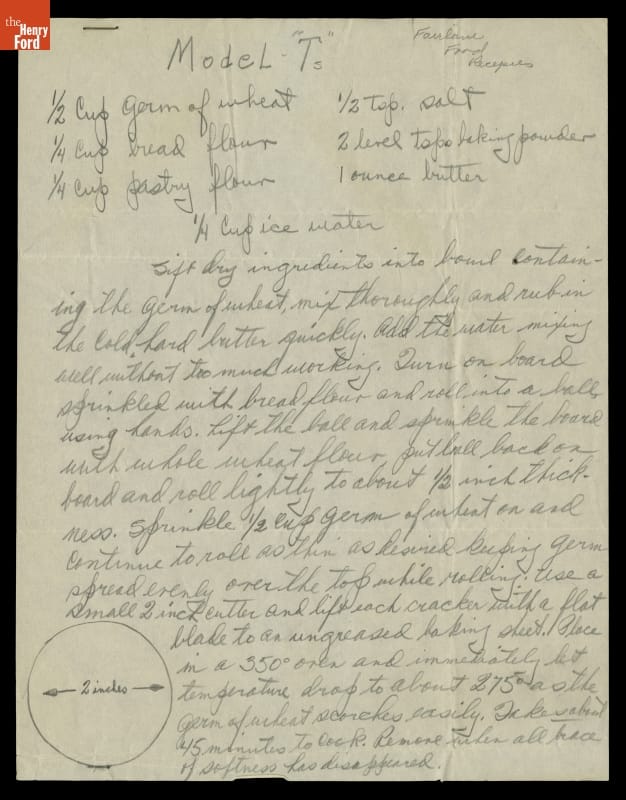 the
Henry
Ford
Model "Ts"
Fairlane
Food
Recepies
1/2 Cup germ of wheat
1/4 Cup bread flour
1/4 Cup pastry flour
1/2 tsp. salt
2 level tsps baking powder
1 ounce butter
1/4 Cup ice water
Sift dry ingredients into bowl contain-
ing the germ of wheat, mix thoroughly and rub in
the cold, hard butter quickly. Add the water mixing
well without too much working. Turn on board
sprinkled with bread flour and roll into a ball,
using hands. Lift the ball and sprinkle the board
with whole wheat flour, put ball back on
board and roll lightly to about 1/2 inch thick-
ness. Sprinkle 1/2 Cup germ of wheat on and
continue to roll as thin as desired keeping germ
spread evenly over the top while rolling. Use a
small 2 inch cutter and lift each cracker with a flat
blade to an ungreased baking sheet. Place
in a 350° oven and immediately let
temperature drop to about 275° as the
germ of wheat scorches easily. Takes about
45 minutes to cook. Remove when all trace
of softness has disappeared.
2 inches